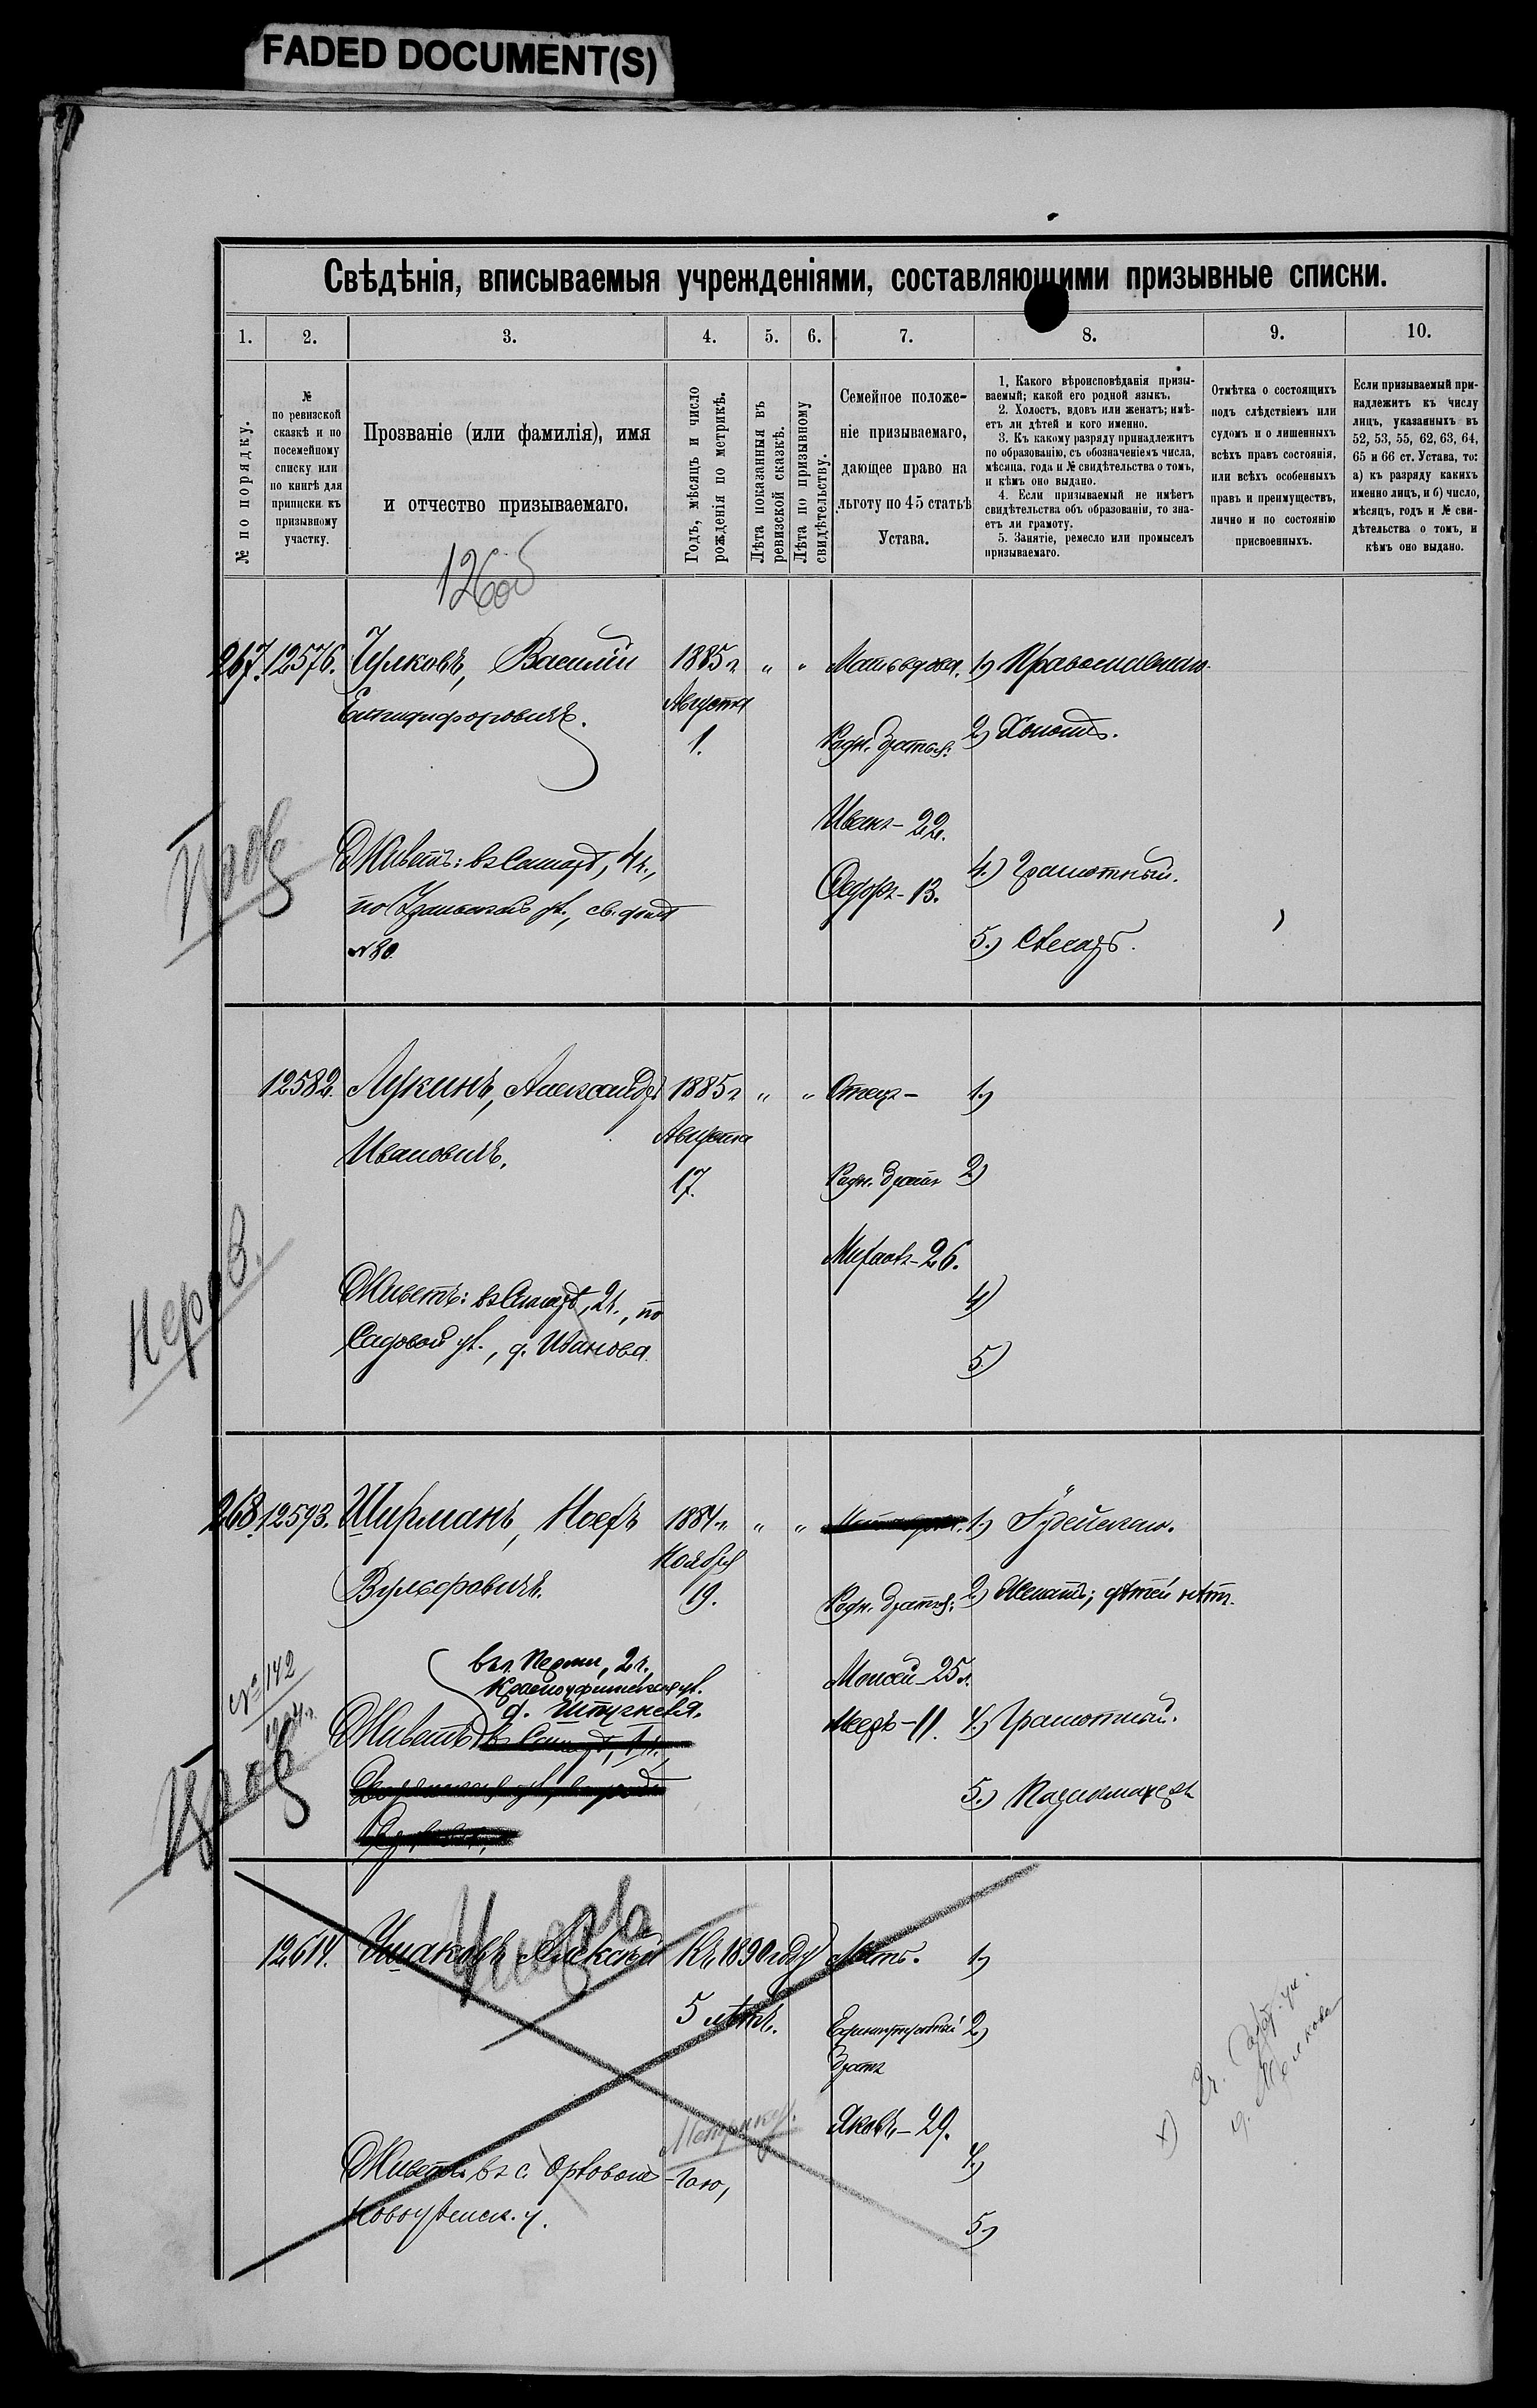 FADED DOCUMENT(S)
Свѣдѣнія, вписываемыя учрежденіями, составляющими призывные списки.
1. 2. 3. 4. 5. 6. 7. 8. 9. 10.
№ по порядку.
№
по ревизской
сказкѣ и по
посемейному
списку или
по книгѣ для
приписки къ
призывному
участку.
Прозваніе (или фамилія), имя
и отчество призываемаго.
Годъ, мѣсяцъ и число
рожденія по метрикѣ.
Лѣта показанныя въ
ревизской сказкѣ.
Лѣта по призывному
свидѣтельству.
Семейное положе-
ніе призываемаго,
дающее право на
льготу по 45 статьѣ
Устава.
1. Какого вѣроисповѣданія призы-
ваемый; какой его родной языкъ.
2. Холостъ, вдовъ или женатъ; имѣ-
етъ ли дѣтей и кого именно.
3. Къ какому разряду принадлежитъ
по образованію, съ обозначеніемъ числа,
мѣсяца, года и № свидѣтельства о томъ,
и кѣмъ оно выдано.
4. Если призываемый не имѣетъ
свидѣтельства объ образованіи, то зна-
етъ ли грамоту.
5. Занятіе, ремесло или промыселъ
призываемаго.
Отмѣтка о состоящихъ
подъ слѣдствіемъ или
судомъ и о лишенныхъ
всѣхъ правъ состоянія,
или всѣхъ особенныхъ
правъ и преимуществъ,
лично и по состоянію
присвоенныхъ.
Если призываемый при-
надлежитъ къ числу
лицъ, указанныхъ въ
52, 53, 55, 62, 63, 64,
65 и 66 ст. Устава, то:
а) къ разряду какихъ
именно лицъ, и б) число,
мѣсяцъ, годъ и № сви-
дѣтельства о томъ, и
кѣмъ оно выдано.
267. 12576. Чулковъ, Василій 1885 г. " " Мать вдова. 1) Православнаго.
Енидифоровичъ. Августа
1. Родн. братья: 2) Холостъ.
Иванъ - 22.
Живетъ: въ Самарѣ, 4 ч., 4.) Грамотный.
по Уральской ул., св. домъ - 13.
№ 80. 5.) Слесарь.
12582. Лукинъ, Александръ 1885 г. " " Отецъ - 1)
Ивановичъ. Августа
17. Родн. братъ 2)
Михаилъ - 26.
Неров.
Живетъ: въ Самарѣ, 2 ч., по 4)
Садовой ул., д. Иванова. 5)
268. 12593. Ширманъ, Іосифъ 1884 г. " " 1) Іудейскаго.
Вульфовичъ. Ноября
19. Родн. братья: 2) Женатъ; дѣтей нѣтъ.
№ 142
въ г. Перми, 2 ч. Моисей - 25
Красноуфимская ул.
Живетъ Мееръ - 11. 4.) Грамотный.
5.)
12614. Ушаковъ Алексѣй Къ 1890 году Мать. 1)
5 лѣтъ. 2)
братъ
Метрику.
Яковъ - 29.
Живетъ: въ с. Орловомъ-Гаю, 4.)
Новоузенск. у. 5)